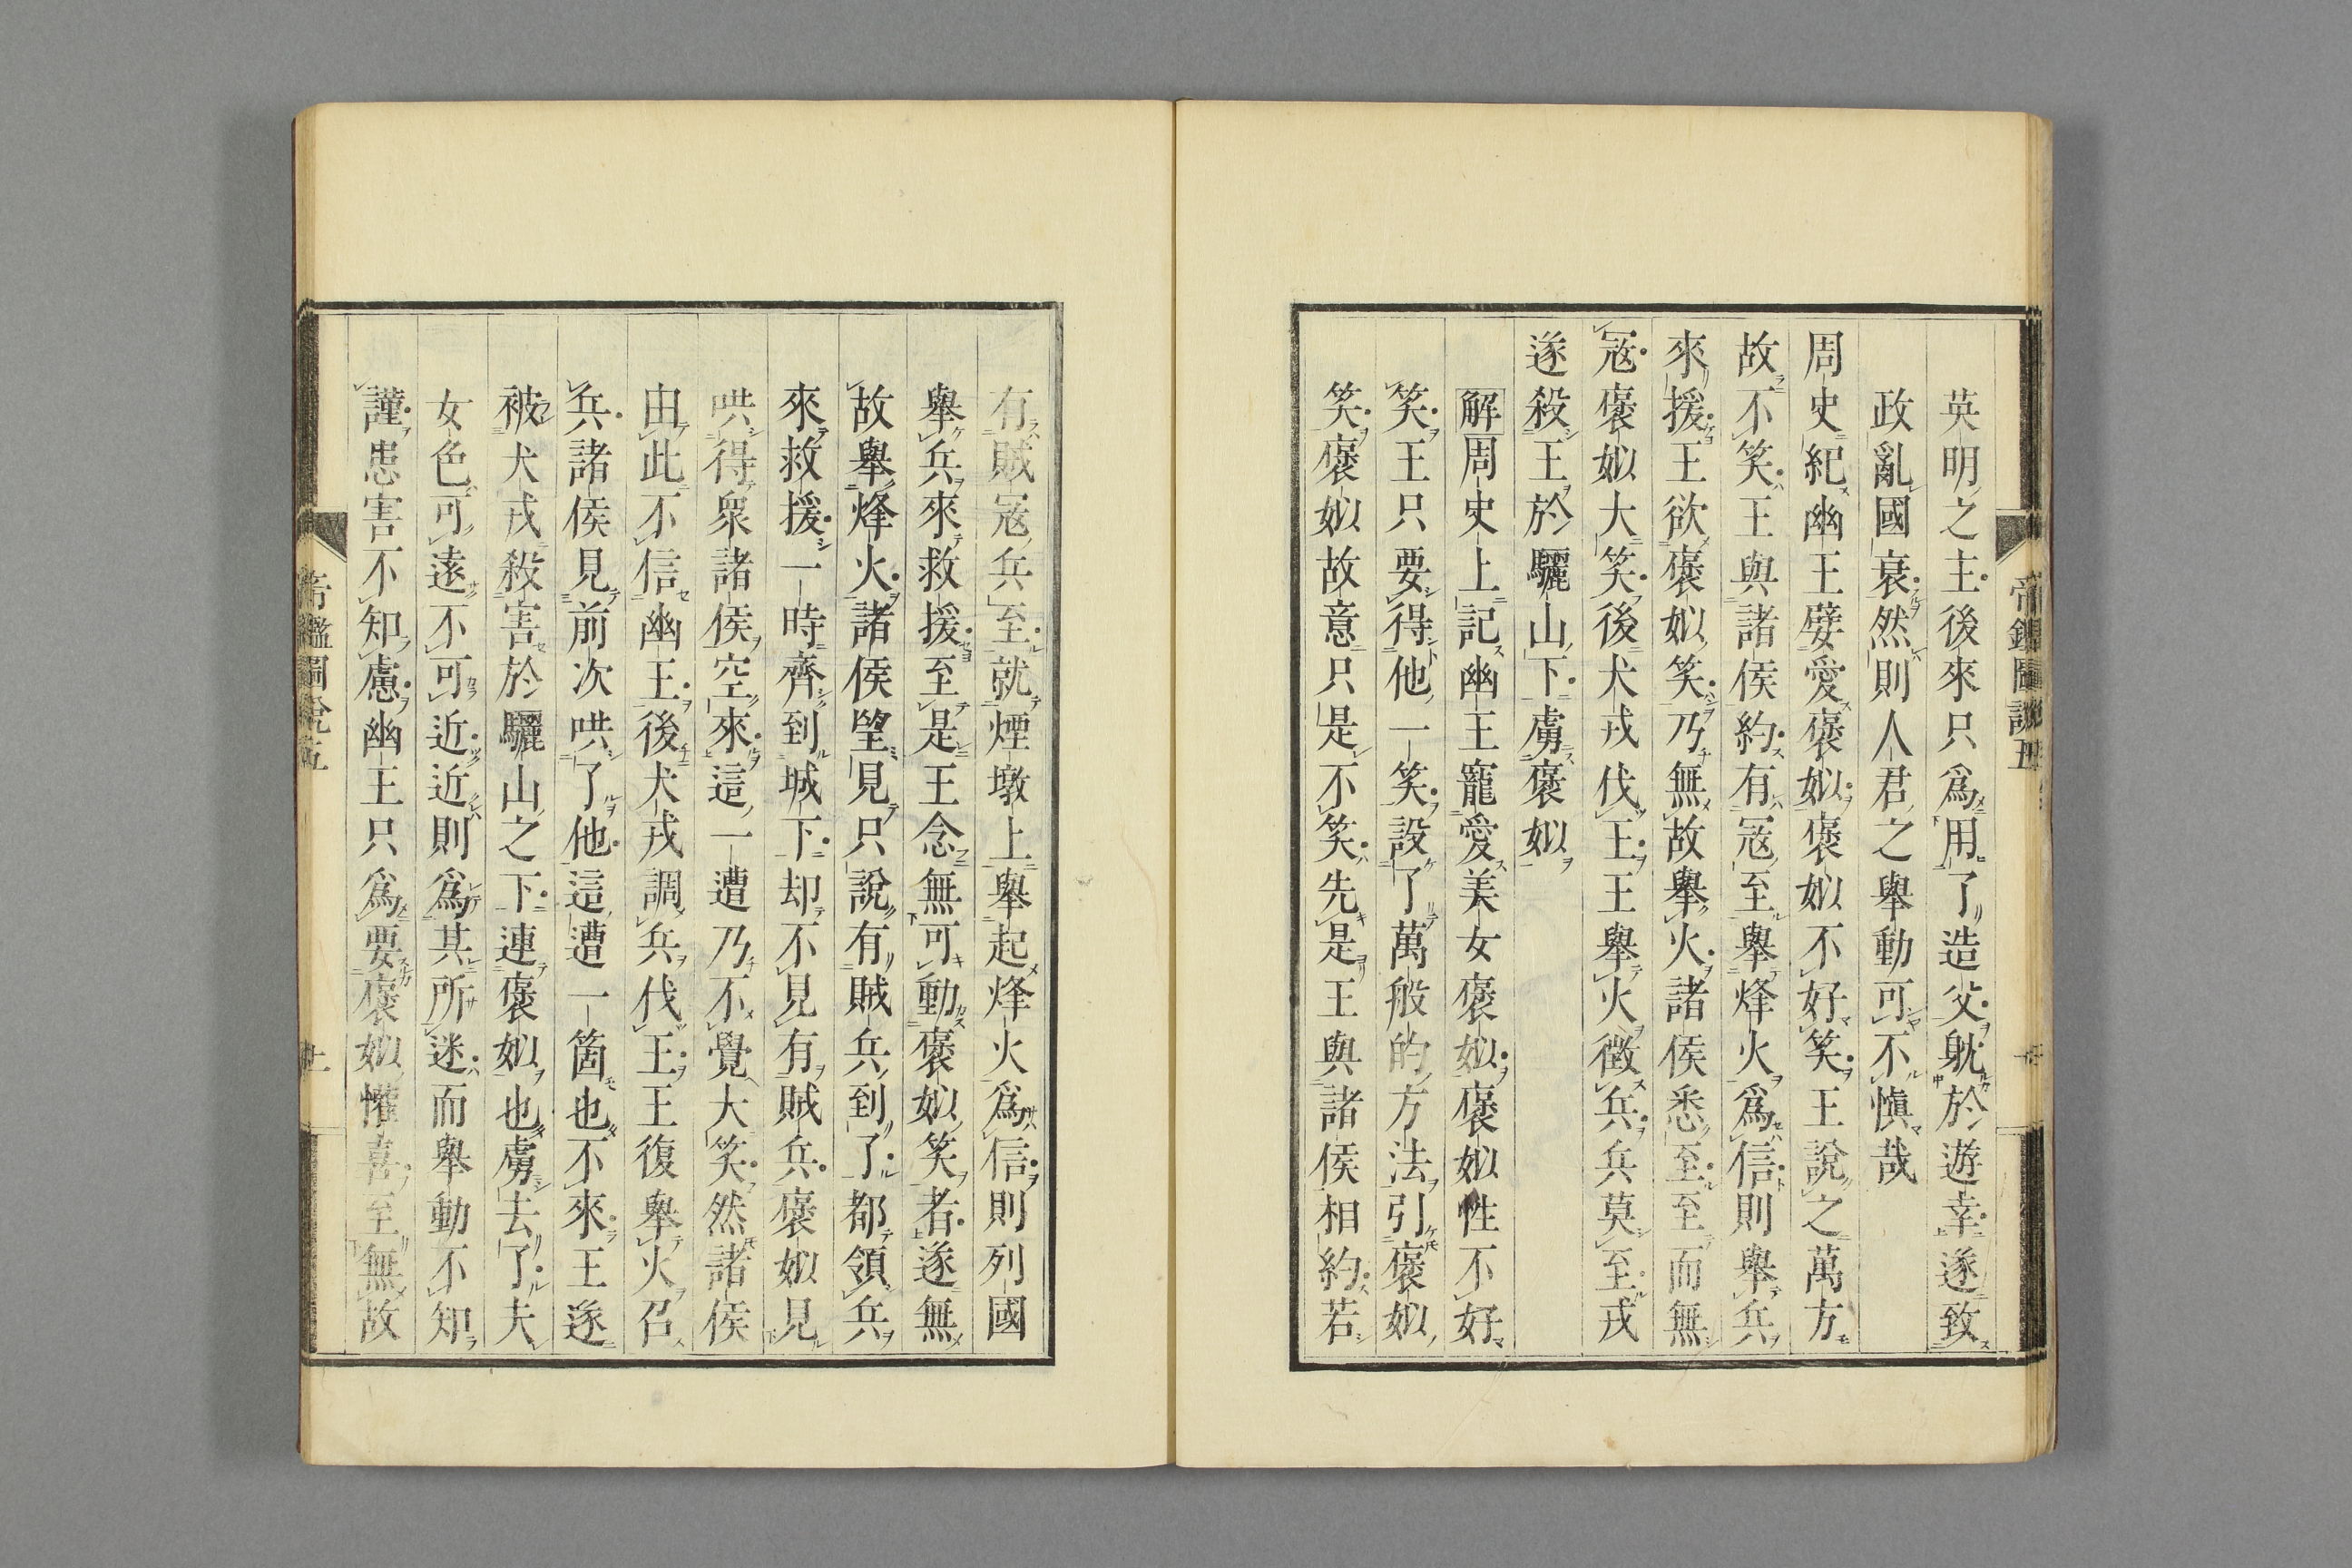 英明之主後來只爲用了造父躭於遊幸遂致
政亂國衰然則人君之舉動可不愼哉
周史紀幽王嬖愛褒姒褒姒不好笑王說之萬方
故不笑王與諸侯約有冦至舉烽火爲信則舉兵
來援王欲褒姒笑乃無故舉火諸侯悉至至而無
冦褒姒大笑後犬戎伐王王舉火徵兵兵莫至戎
遂殺王於驪山下虜褒姒
解周史上記幽王寵愛美女褒姒褒姒性不好
笑王只要得他一笑設了萬般的方法引褒姒
笑褒姒故意只是不笑先是王與諸侯相約若
有賊冦兵至就煙墩上舉起烽火爲信則列國
舉兵來救援至是王念無可動褒姒笑者遂無
故舉烽火諸侯望見只說有賊兵到了都領兵
來救援一時齊到城下却不見有賊兵褒姒見
哄得衆諸侯空來這一遭乃不覺大笑然諸侯
由此不信幽王後犬戎調兵伐王王復舉火召
兵諸侯見前次哄了他這遭一箇也不來王遂
被犬戎殺害於驪山之下連褒姒也虜去了夫
女色可遠不可近近則爲其所迷而舉動不知
謹患害不知慮幽王只爲要褒姒懽喜至無故
帝鑑圖說五